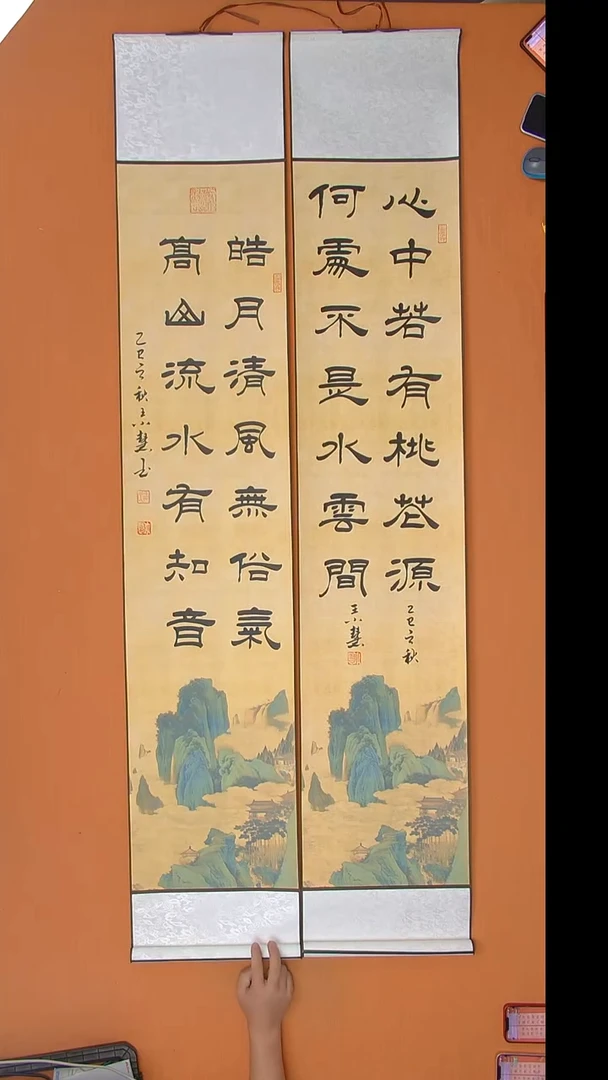 心中若有桃花源
何處不是水雲間
乙巳之秋
王小慧
皓月清風無俗氣
高山流水有知音
乙巳之秋王小慧書